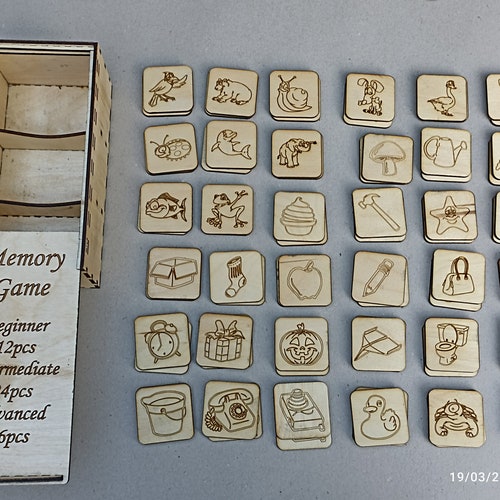 Memory
Game
eginner
12pcs
ermediate
4pcs
vanced
6pcs
19/03/2